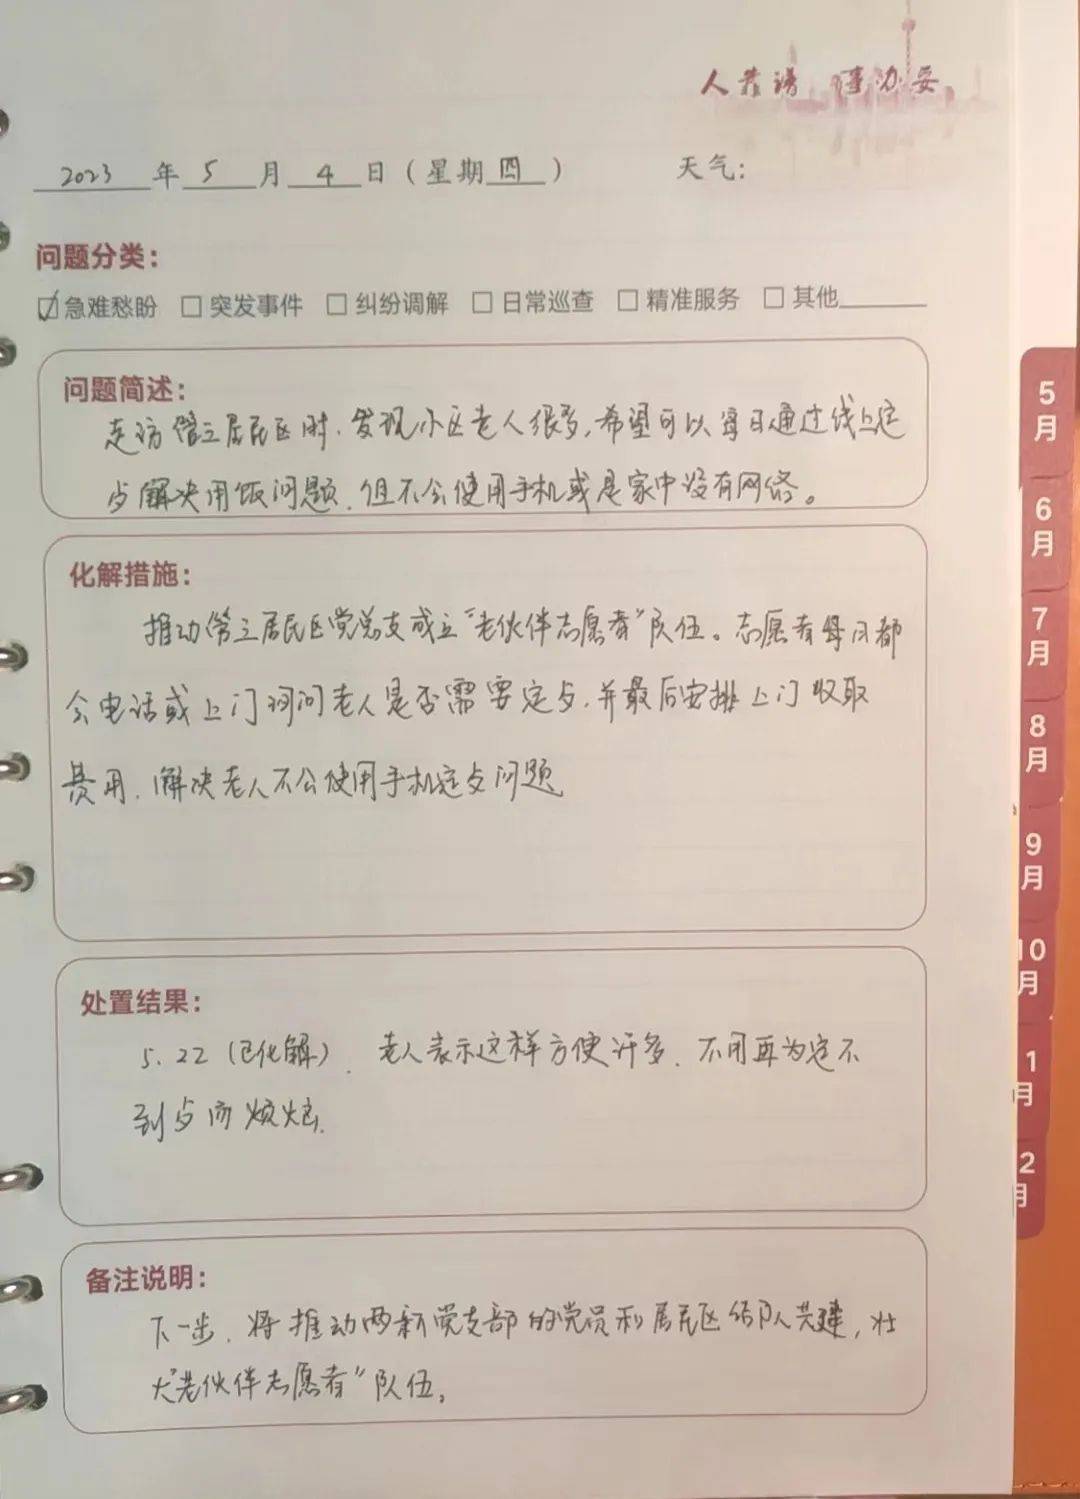 人靠谱 事办妥
2023年5月4日（星期四） 天气：
问题分类：
☑急难愁盼 □突发事件 □纠纷调解 □日常巡查 □精准服务 □其他
问题简述：
走访管三居民区时，发现小区老人很多，希望可以每日通过线上定
点解决用饭问题，但不会使用手机或是家中没有网络。
化解措施：
推动管三居民区党总支成立“老伙伴志愿者”队伍。志愿者每日都
会电话或上门询问老人是否需要定点，并最后安排上门收取
费用，解决老人不会使用手机定点问题
处置结果：
5.22（已化解），老人表示这样方便许多，不用再为定不
到点而烦恼。
备注说明：
下一步，将推动两新党支部的党员和居民区结队共建，壮
大“老伙伴志愿者”队伍。
5月
6月
7月
8月
9月
10月
1月
2月